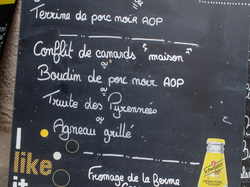 Terrine de porc noir AOP
Conflit de canards "maison"
ou
Boudin de porc noir AOP
ou
Truite des Pyrennées
ou
Agneau grillé
I
like
it
Fromage de la ferme